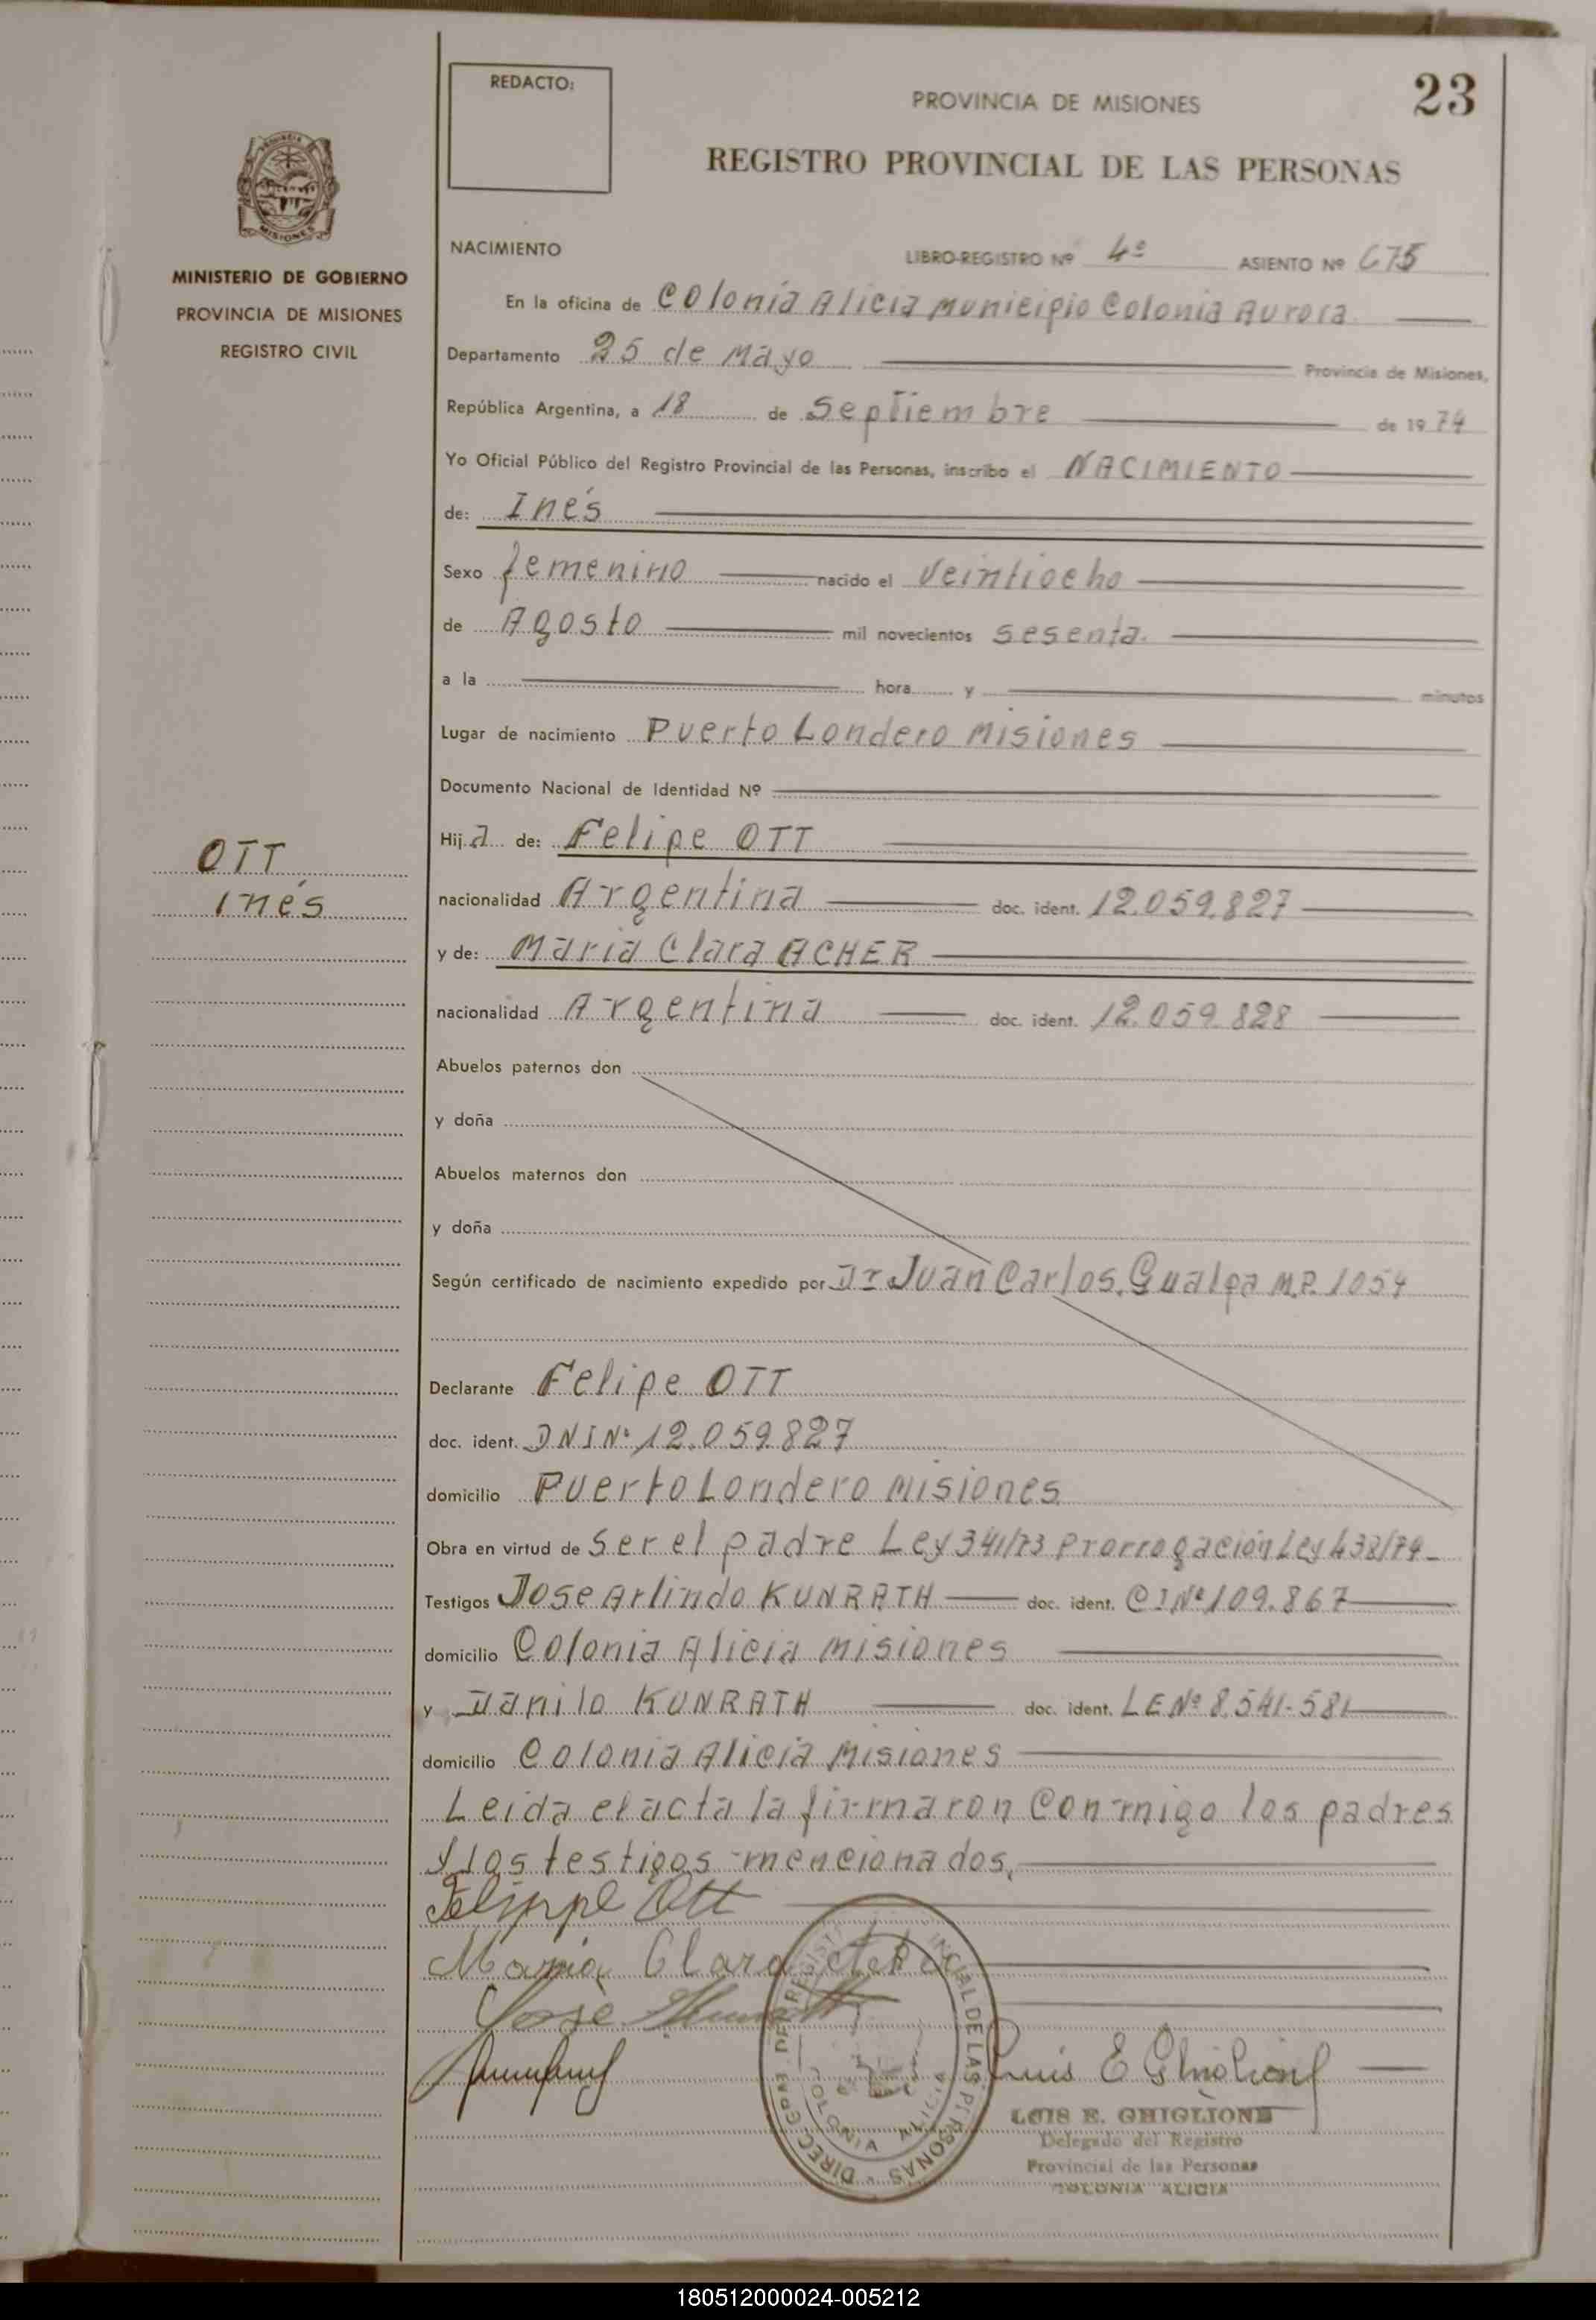 REDACTO:
PROVINCIA DE MISIONES
23
REGISTRO PROVINCIAL DE LAS PERSONAS
MISIONES
MINISTERIO DE GOBIERNO
PROVINCIA DE MISIONES
REGISTRO CIVIL
NACIMIENTO LIBRO-REGISTRO Nº 4º ASIENTO Nº 675
En la oficina de Colonia Alicia Municipio Colonia Aurora
Departamento 25 de Mayo Provincia de Misiones,
República Argentina, a 18 de Septiembre de 1974
Yo Oficial Público del Registro Provincial de las Personas, inscribo el NACIMIENTO
de: Inés
Sexo femenino nacido el Veintiocho
de Agosto mil novecientos sesenta.
a la hora y minutos
Lugar de nacimiento Puerto Londero Misiones
Documento Nacional de Identidad Nº
Hija de: Felipe OTT
OTT
Inés
nacionalidad Argentina doc. ident. 12.059.827
y de: Maria Clara ACHER
nacionalidad Argentina doc. ident. 12.059.828
Abuelos paternos don
y doña
Abuelos maternos don
y doña
Según certificado de nacimiento expedido por Dr Juan Carlos. Gualpa M.P. 1054
Declarante Felipe OTT
doc. ident. DNI Nº 12.059.827
domicilio Puerto Londero Misiones
Obra en virtud de Ser el padre Ley 341/73 Prorrogación Ley 438/74-
Testigos Jose Arlindo KUNRATH doc. ident. CI Nº 109.867
domicilio Colonia Alicia Misiones
y Danilo KUNRATH doc. ident. LE Nº 8.541-581
domicilio Colonia Alicia Misiones
Leida el acta la firmaron Conmigo los padres
y los testigos mencionados.
Felippe Ott
Maria Clara
José
Luis E Ghiglione
DIREC. GRAL. DEL REGISTRO PROVINCIAL DE LAS PERSONAS
COLONIA ALICIA
LUIS E. GHIGLIONE
Delegado del Registro
Provincial de las Personas
COLONIA ALICIA
180512000024-005212